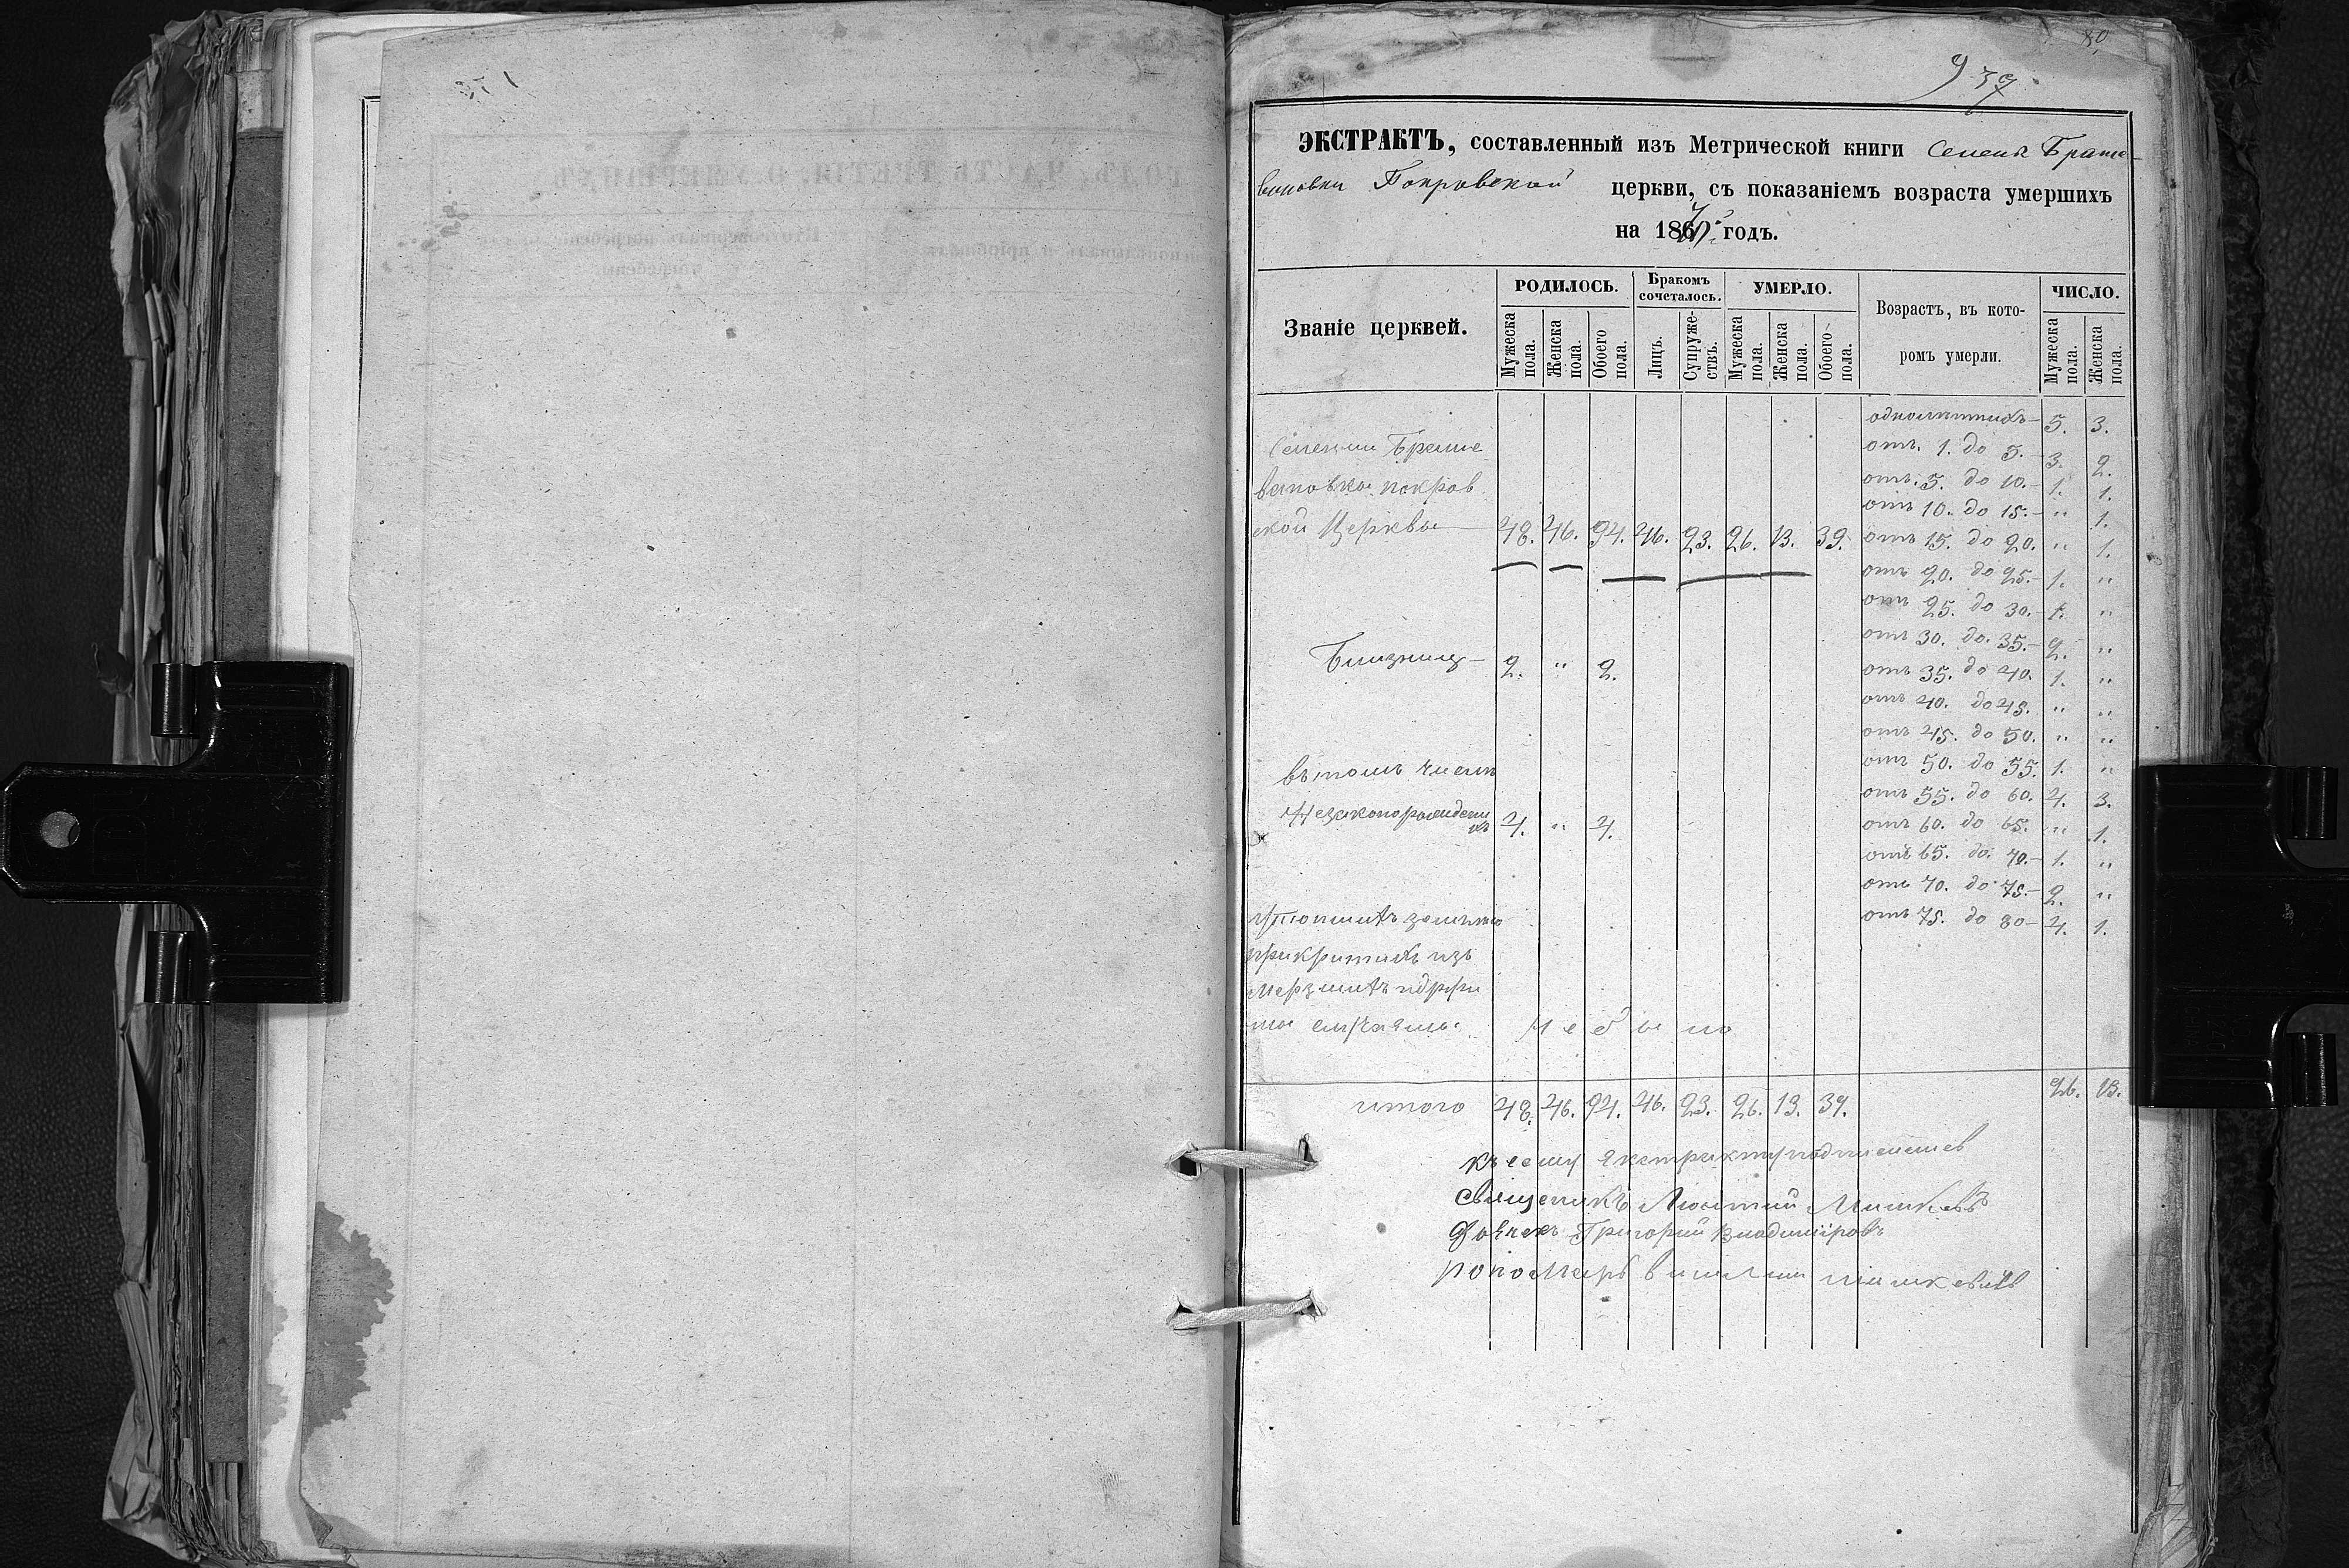 80
939
ЭКСТРАКТЪ, составленный изъ Метрической книги Селенія Браше
вановки Покровской церкви, съ показаніемъ возраста умершихъ
на 1867 годъ.
Званіе церквей.
РОДИЛОСЬ.
Мужеска пола.
Женска пола.
Обоего пола.
Бракомъ сочеталось.
Лицъ.
Супружествъ.
УМЕРЛО.
Мужеска пола.
Женска пола.
Обоего пола.
Возрастъ, въ кото-
ромъ умерли.
ЧИСЛО.
Мужеска пола.
Женска пола.
Селении Браше
вановка покров
ской Церквы 48. 46. 94. 46. 23. 26. 13. 39.
Близнец 2. " 2.
въ томъ числѣ
Незаконорожденн
ихъ 4. " 4.
прикритихъ изъ
не было
однолѣтнихъ 5. 3.
отъ 1. до 5. 3. 2.
отъ 5. до 10. 1. 1.
отъ 10. до 15. " 1.
отъ 15. до 20. " 1.
отъ 20. до 25. 1. "
отъ 25. до 30. 1. "
отъ 30. до 35. 2. "
отъ 35. до 40. 1. "
отъ 40. до 45. " "
отъ 45. до 50. " "
отъ 50. до 55. 1. "
отъ 55. до 60. 4. 3.
отъ 60. до 65. " 1.
отъ 65. до 70. 1. "
отъ 70. до 75. 2. "
отъ 75. до 80 4. 1.
итого 48. 46. 94. 46. 23. 26. 13. 39. 26. 13.
къ сему екстракту подписались
Священикъ
Дьячекъ Григорий Владимiровъ